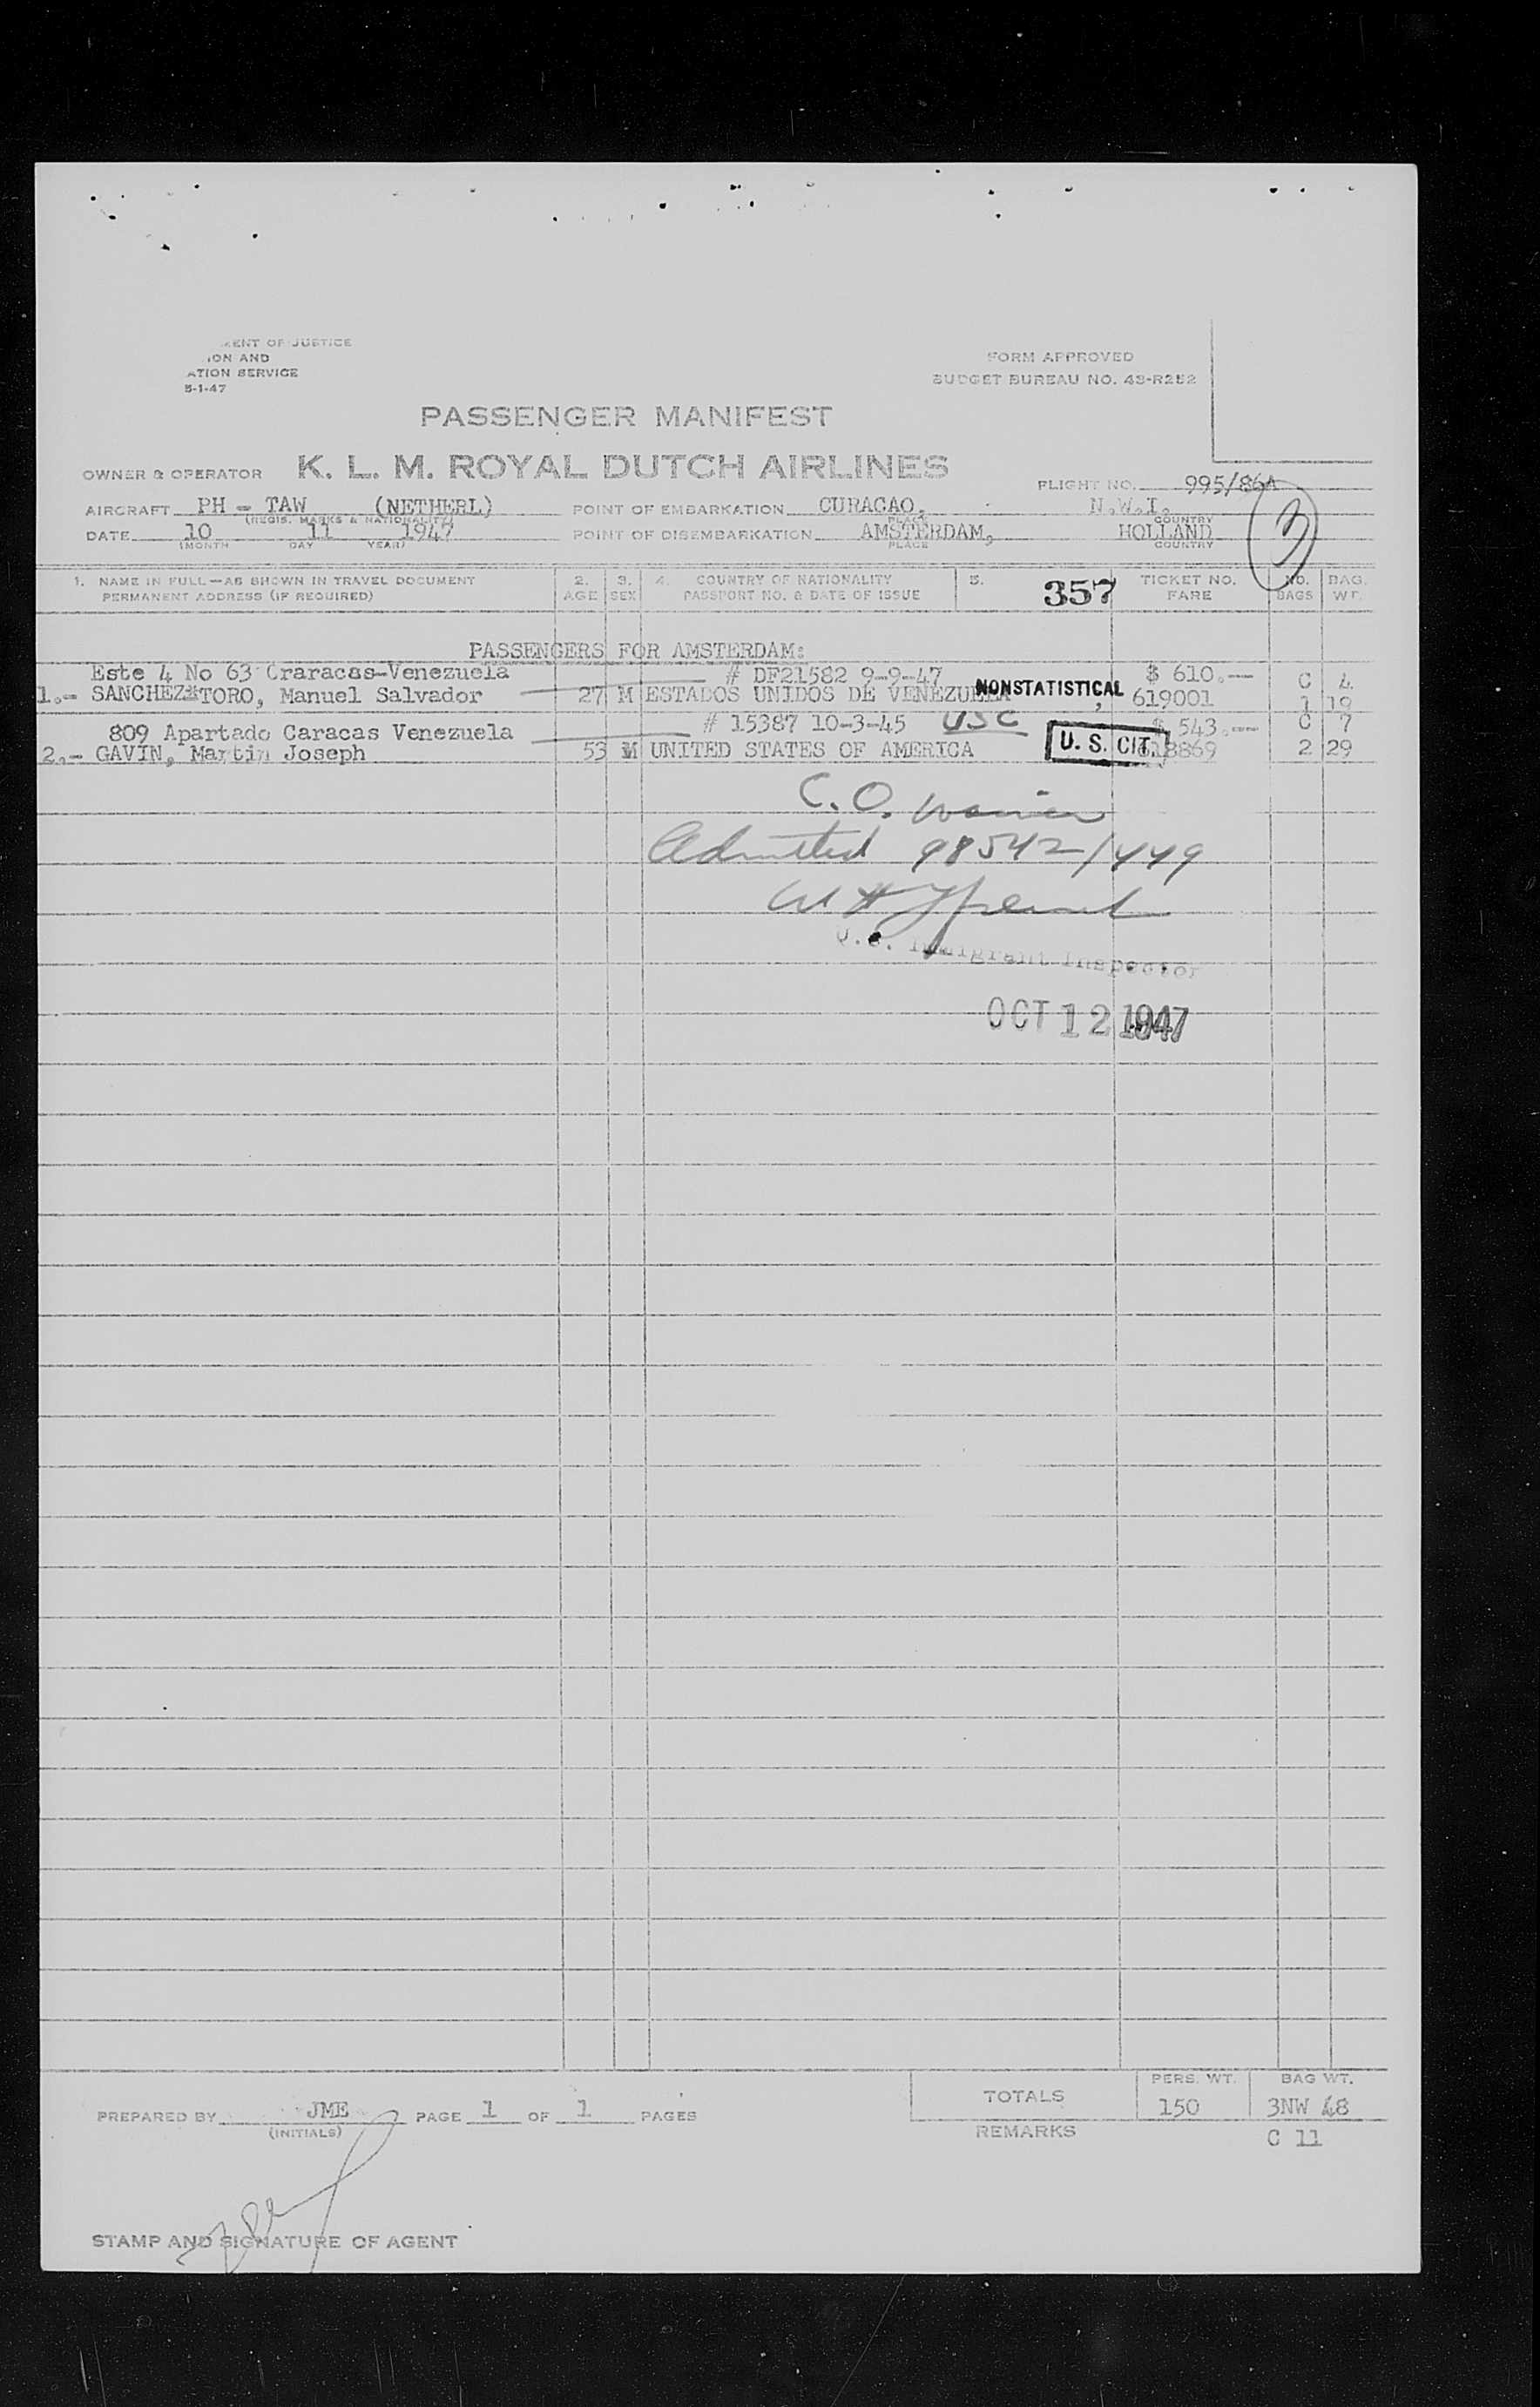 ENT OF JUSTICE
ION AND
ATION SERVICE
5-1-47
FORM APPROVED
BUDGET BUREAU NO. 43-R252
PASSENGER MANIFEST
OWNER & OPERATOR K. L. M. ROYAL DUTCH AIRLINES
FLIGHT NO. 995/86A
AIRCRAFT PH - TAW (NETHERL) POINT OF EMBARKATION CURACAO, N.W.I.
(REGIS. MARKS & NATIONALITY) PLACE COUNTRY
DATE 10 11 1947 POINT OF DISEMBARKATION AMSTERDAM, HOLLAND
(MONTH DAY YEAR) PLACE COUNTRY
3
1. NAME IN FULL—AS SHOWN IN TRAVEL DOCUMENT 2. 3. 4. COUNTRY OF NATIONALITY 5. 357 TICKET NO. NO. BAG.
PERMANENT ADDRESS (IF REQUIRED) AGE SEX PASSPORT NO. & DATE OF ISSUE FARE BAGS WT.
PASSENGERS FOR AMSTERDAM:
Este 4 No 63 Craracas-Venezuela # DF21582 9-9-47 $ 610.— C 4
1.- SANCHEZ-TORO, Manuel Salvador 27 M ESTADOS UNIDOS DE VENEZUELA, NONSTATISTICAL 619001 1 19
809 Apartado Caracas Venezuela # 15387 10-3-45 USC $ 543.— C 7
2.- GAVIN, Martin Joseph 53 M UNITED STATES OF AMERICA U. S. CIT. 618869 2 29
C. O.
Admitted 98542/449
U.S. Immigrant Inspector
OCT 12 1947
TOTALS PERS. WT. BAG WT.
150 3NW 48
PREPARED BY JME PAGE 1 OF 1 PAGES
(INITIALS)
REMARKS C 11
STAMP AND SIGNATURE OF AGENT